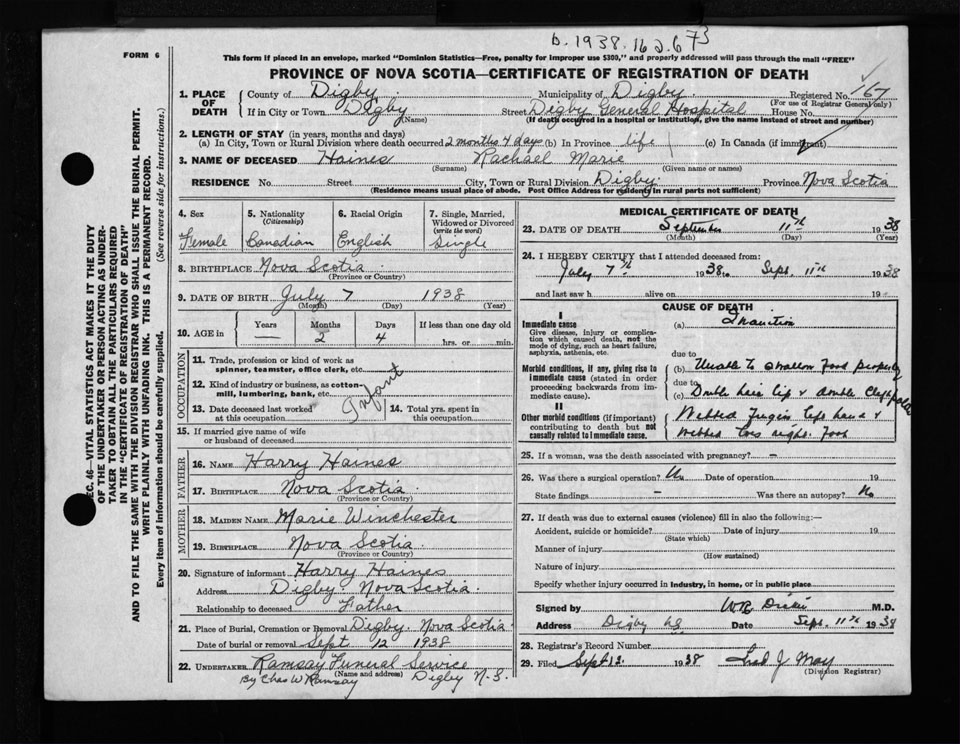 b. 1938. 162673
FORM 6
This form if placed in an envelope, marked "Dominion Statistics—Free, penalty for improper use $300," and properly addressed will pass through the mail "FREE"
PROVINCE OF NOVA SCOTIA—CERTIFICATE OF REGISTRATION OF DEATH
1. PLACE OF DEATH
County of Digby Municipality of Digby Registered No. 167
(For use of Registrar General only)
If in City or Town Digby Street Digby General Hospital House No.
(Name) (If death occurred in a hospital or institution, give the name instead of street and number)
2. LENGTH OF STAY (in years, months and days)
(a) In City, Town or Rural Division where death occurred 2 months 4 days (b) In Province life (c) In Canada (if immigrant)
3. NAME OF DECEASED Haines Rachael Marie
(Surname) (Given name or names)
RESIDENCE No. Street City, Town or Rural Division Digby Province Nova Scotia
(Residence means usual place of abode. Post Office Address for residents in rural parts not sufficient)
4. Sex
Female
5. Nationality
(Citizenship)
Canadian
6. Racial Origin
English
7. Single, Married, Widowed or Divorced
(write the word)
Single
8. BIRTHPLACE Nova Scotia
(Province or Country)
9. DATE OF BIRTH July 7 1938
(Month) (Day) (Year)
10. AGE in
Years Months Days If less than one day old
— 2 4 hrs. or min.
OCCUPATION
11. Trade, profession or kind of work as spinner, teamster, office clerk, etc.
12. Kind of industry or business, as cotton-mill, lumbering, bank, etc.
Infant
13. Date deceased last worked at this occupation
14. Total yrs. spent in this occupation
15. If married give name of wife or husband of deceased
FATHER
16. NAME Harry Haines
17. BIRTHPLACE Nova Scotia
(Province or Country)
MOTHER
18. MAIDEN NAME Marie Winchester
19. BIRTHPLACE Nova Scotia
(Province or Country)
20. Signature of informant Harry Haines
Address Digby Nova Scotia
Relationship to deceased Father
21. Place of Burial, Cremation or Removal Digby. Nova Scotia
Date of burial or removal Sept 12 1938
22. UNDERTAKER Ramsay Funeral Service
(Name and address)
By Chas W Ramsay Digby N.S.
MEDICAL CERTIFICATE OF DEATH
23. DATE OF DEATH September 11th 1938
(Month) (Day) (Year)
24. I HEREBY CERTIFY that I attended deceased from:
July 7th 1938 to Sept. 11th 1938
and last saw h alive on 19
CAUSE OF DEATH
I
Immediate cause
Give disease, injury or complication which caused death, not the mode of dying, such as heart failure, asphyxia, asthenia, etc.
(a) Inanition
due to
Morbid conditions, if any, giving rise to immediate cause (stated in order proceeding backwards from immediate cause).
(b) Unable to swallow food properly
due to
(c) Double hare lip & double cleft palate
II
Other morbid conditions (if important) contributing to death but not causally related to immediate cause.
Webbed Fingers left hand &
Webbed toes right. Foot
25. If a woman, was the death associated with pregnancy? —
26. Was there a surgical operation? No Date of operation 19
State findings — Was there an autopsy? No
27. If death was due to external causes (violence) fill in also the following:—
Accident, suicide or homicide? Date of injury 19
(State which)
Manner of injury
(How sustained)
Nature of injury
Specify whether injury occurred in industry, in home, or in public place
Signed by M.D.
Address Digby NS Date Sept. 11th 1938
28. Registrar's Record Number
29. Filed Sept 12. 1938 J May
(Division Registrar)
SEC. 46—VITAL STATISTICS ACT MAKES IT THE DUTY
OF THE UNDERTAKER OR PERSON ACTING AS UNDER-
TAKER TO OBTAIN ALL THE PARTICULARS REQUIRED
IN THE "CERTIFICATE OF REGISTRATION OF DEATH"
AND TO FILE THE SAME WITH THE DIVISION REGISTRAR WHO SHALL ISSUE THE BURIAL PERMIT.
WRITE PLAINLY WITH UNFADING INK. THIS IS A PERMANENT RECORD.
Every item of information should be carefully supplied. (See reverse side for instructions.)